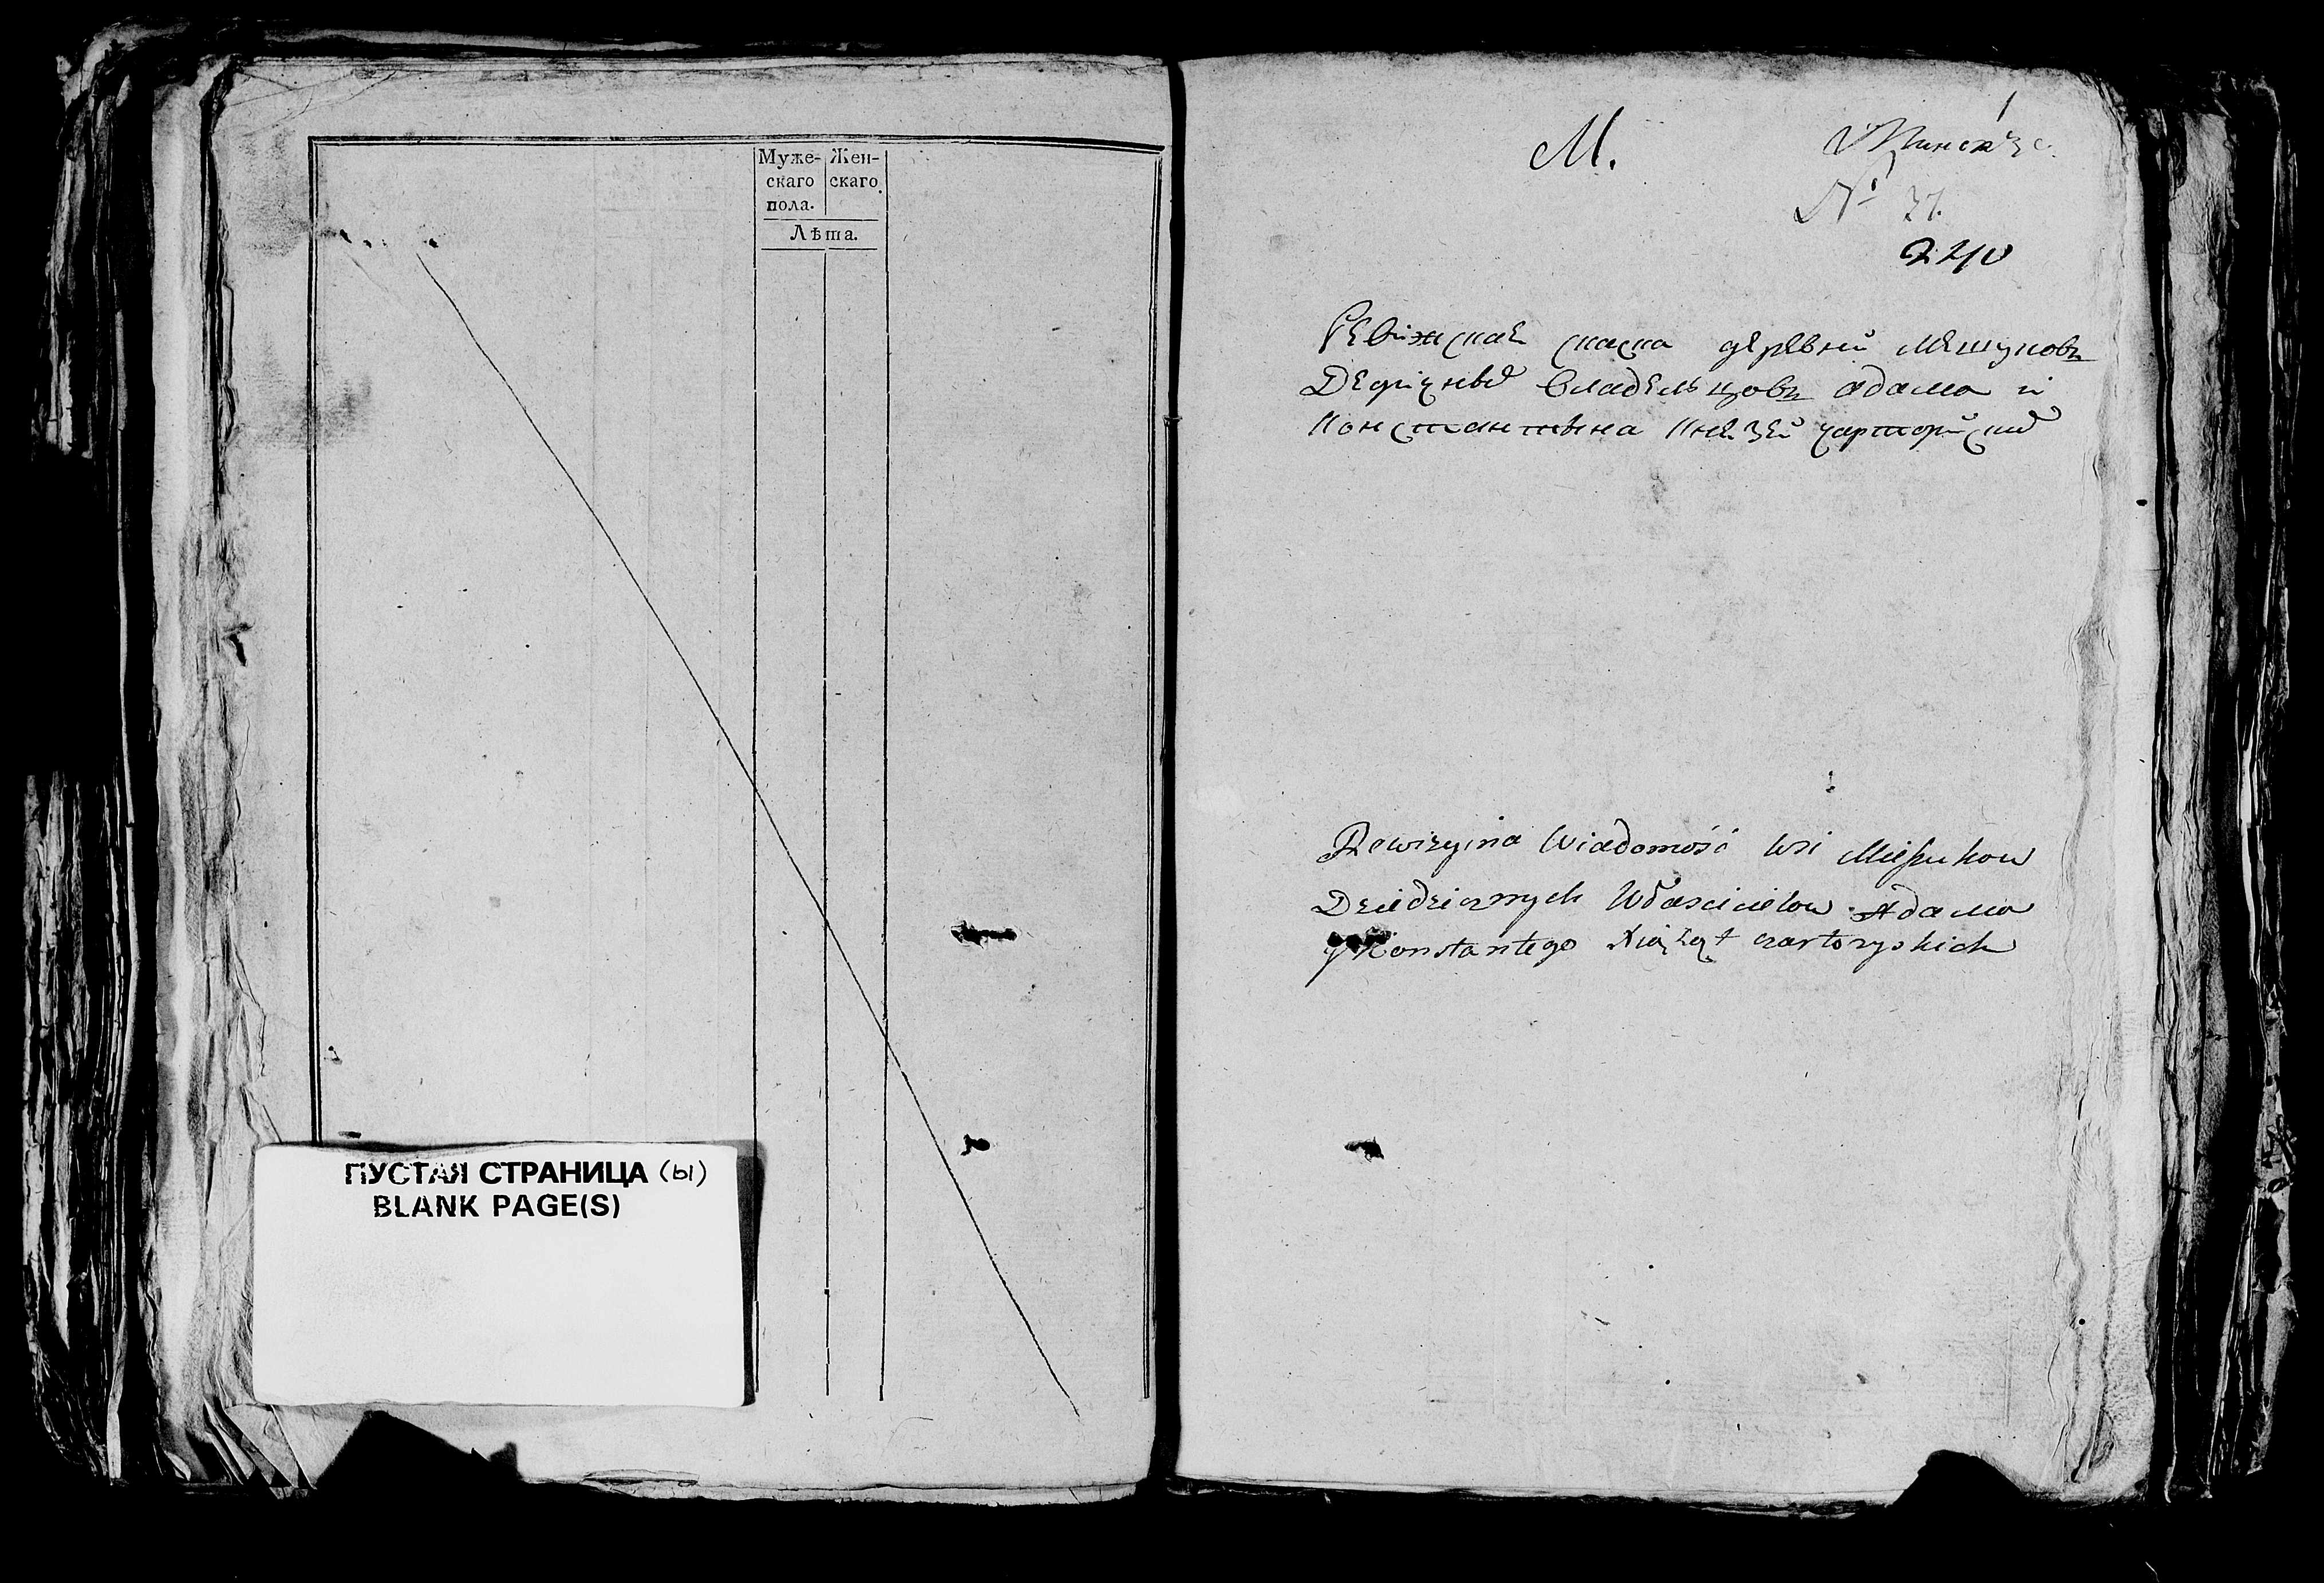 Муже- Жен-
скаго скаго
пола.
Лѣта.
ПУСТАЯ СТРАНИЦА (ы)
BLANK PAGE(S)
М.
№ 71.
240
Ревижская скаска деревни Мешуковъ
владельцовъ адама и
Константына Князей чарторискихъ
Rewizyina Wiadomość wsi Mieszukow
Dziedzicznych Właścicielow Adama
y Konstantego Xiążąt czartoryskich